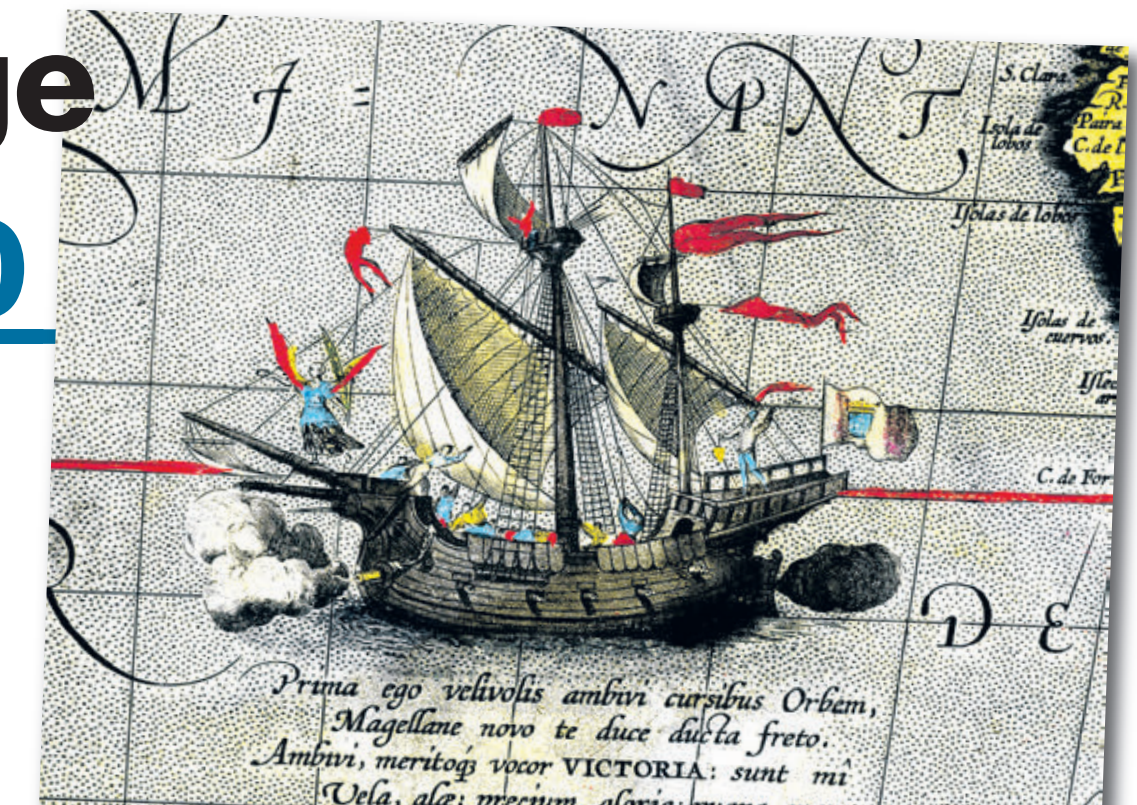 ge
M I = N P N T
S. Clara
R.
Isola de
lobos
Paira
C. de
Isolas de lobos
Isolas de
cuervos.
C. de For
D E
Prima ego velivolis ambivi cursibus Orbem,
Magellane novo te duce ducta freto.
Ambivi, meritoq₃ vocor VICTORIA: sunt mî
Vela, alæ; precium, gloria: pugna,